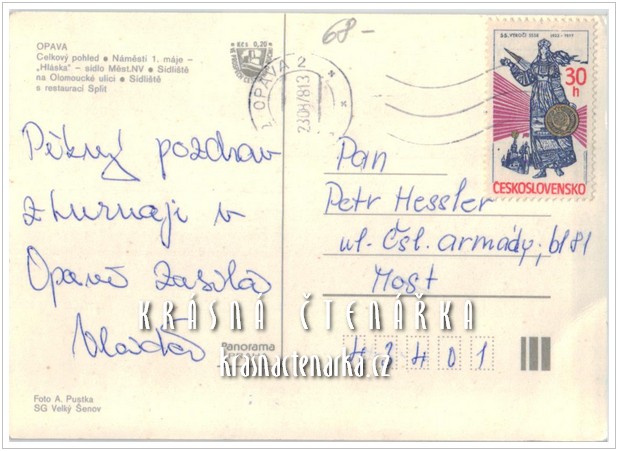 OPAVA
Celkový pohled ● Náměstí 1. máje –
„Hláska“ – sídlo Měst.NV ● Sídliště
na Olomoucké ulici ● Sídliště
s restaurací Split
Kčs 0,20
68-
OPAVA 2
60. VÝROČÍ VŘSR 1917-1977
30
h
ČESKOSLOVENSKO
Pěkný pozdrav
z turnaji v
Opavě zasílá
Vlaďa
Pan
Petr Hessler
ul. Čsl. armády, bl 81
Most
43401
KRÁSNÁ ČTENÁŘKA
krasnactenarka.cz
Panorama
Foto A. Pustka
SG Velký Šenov